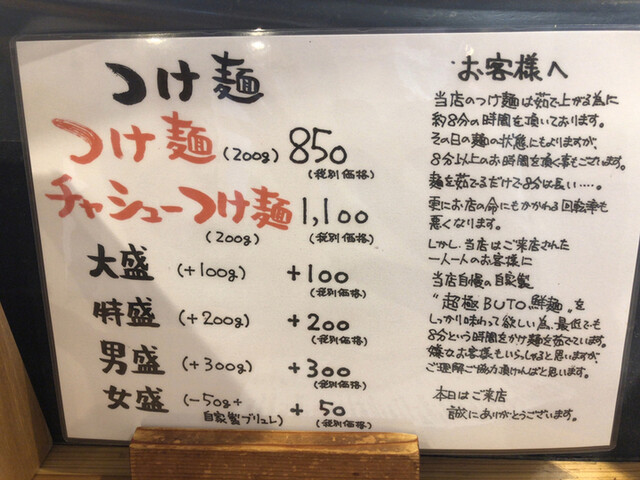 つけ麺
つけ麺 (200g) 850
(税別価格)
チャシューつけ麺 1,100
(200g) (税別価格)
大盛 (+100g) +100
(税別価格)
特盛 (+200g) +200
(税別価格)
男盛 (+300g) +300
(税別価格)
女盛 (-50g+ + 50
自家製ブリュレ) (税別価格)
お客様へ
当店のつけ麺は茹で上がる為に
約8分の時間を頂いております。
その日の麺の状態にもよりますが、
8分以上のお時間を頂く事もございます。
麺を茹でるだけで8分は長い・・・・。
更にお店の命にもかかわる回転率も
悪くなります。
しかし、当店はご来店された
一人一人のお客様に
当店自慢の自家製
"超極BUTO鮮麺"を
しっかり味わって欲しい為、最低でも
8分という時間をかけ麺を茹でています。
嫌なお客様もいらっしゃると思いますが、
ご理解ご協力頂ければと思います。
本日はご来店
誠にありがとうございます。